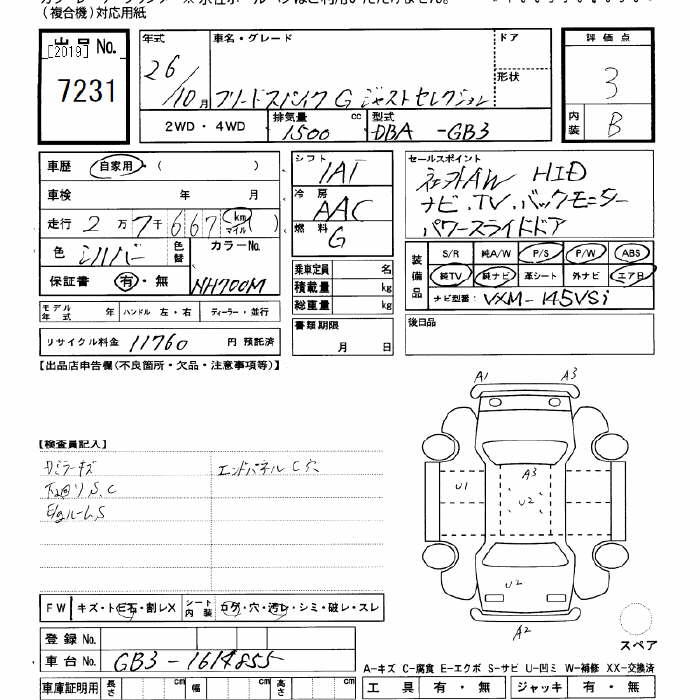 (複合機)対応用紙
出品 No.
[2019]
7231
年式
26/10月
車名・グレード
フリードスパイク G ジャストセレクション
ドア
形状
2WD・4WD
排気量
1500
cc
型式
DBA -GB3
評価点
3
内装
B
車歴 自家用・( )
車検 年 月
走行 2万7千667 km マイル ( )
色 シルバー 色替
カラーNo.
NH700M
保証書 有・無
モデル年式 年 ハンドル 左・右 ディーラー・並行
リサイクル料金 11760 円 預託済
シフト
IAT
冷房
AAC
燃料
G
乗車定員 名
積載量 kg
総重量 kg
書類期限
月 日
セールスポイント
社外AW HID
ナビ.TV.バックモニター
パワースライドドア
装備品
S/R 純A/W P/S P/W ABS
純TV 純ナビ 革シート 外ナビ エアB
ナビ型番: VXM-145VSi
後日品
【出品店申告欄(不良箇所・欠品・注意事項等)】
【検査員記入】
エンドパネルC穴
下回りS.C
FW キズ・ト飛石・割レX
シート内装 コゲ・穴・汚レ・シミ・破レ・スレ
登録 No.
車台 No. GB3-1614855
車庫証明用 長さ cm 幅 cm 高さ cm
A1
A3
U1
A3
U2
U2
A2
スペア
A−キズ C−腐食 E−エクボ S−サビ U−凹ミ W−補修 XX−交換済
工具 有・無 ジャッキ 有・無